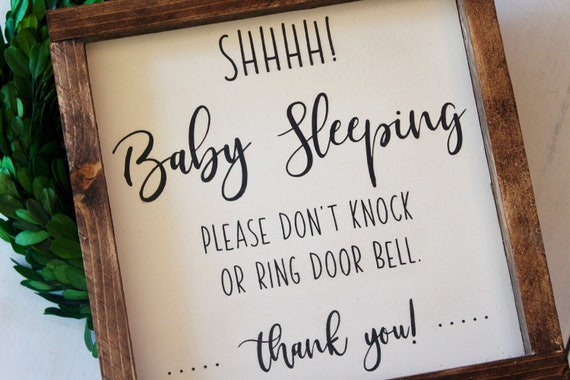 SHHHH!
Baby Sleeping
PLEASE DON'T KNOCK
OR RING DOOR BELL.
..... thank you! .....